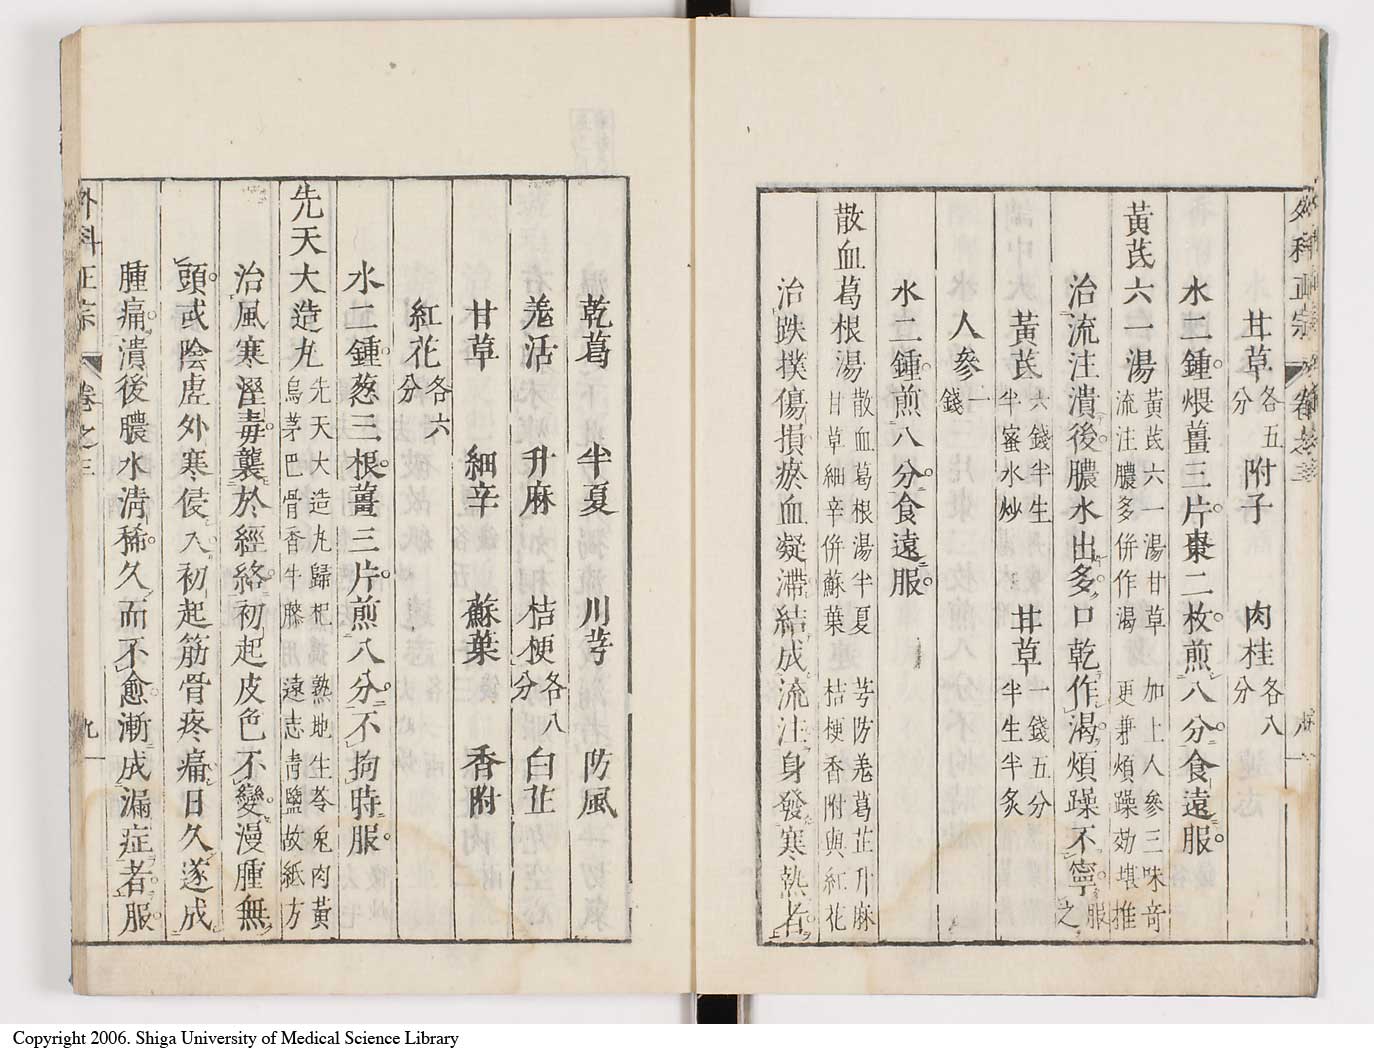 外科正宗 卷之三
甘草各五分 附子 肉桂各八分
水二鍾煨薑三片棗二枚煎八分食遠服
黃芪六一湯 黃芪六一湯甘草 加上人參三味竒 流注膿多併作渴 更兼煩躁効堪推
治流注潰後膿水出多口乾作渴煩躁不寧服之
黃芪六錢半生半蜜水炒 甘草一錢五分半生半炙
人參一錢
水二鍾煎八分食遠服
散血葛根湯 散血葛根湯半夏 芎防羗葛芷升麻 甘草細辛併蘇葉 桔梗香附與紅花
治跌撲傷損瘀血凝滯結成流注身發寒熱者
乾葛 半夏 川芎 防風
羗活 升麻 桔梗各八分 白芷
甘草 細辛 蘇葉 香附
紅花各六分
水二鍾葱三根薑三片煎八分不拘時服
先天大造丸 先天大造丸歸杞 熟地生苓兎肉黃 烏茅巴骨香牛膝 遠志青鹽故紙方
治風寒溼毒襲於經絡初起皮色不變漫腫無
頭或陰虛外寒侵入初起筋骨疼痛日久遂成
腫痛潰後膿水清稀久而不愈漸成漏症者服
外科正宗 卷之三 九
Copyright 2006. Shiga University of Medical Science Library